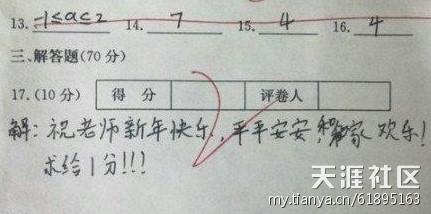 13. -1≤a≤2 14. 7 15. 4 16. 4
三.解答题(70分)
17.(10分) 得 分 评卷人
解:祝老师新年快乐,平平安安,阖家欢乐!
求给1分!!!
天涯社区
my.tianya.cn/61895163